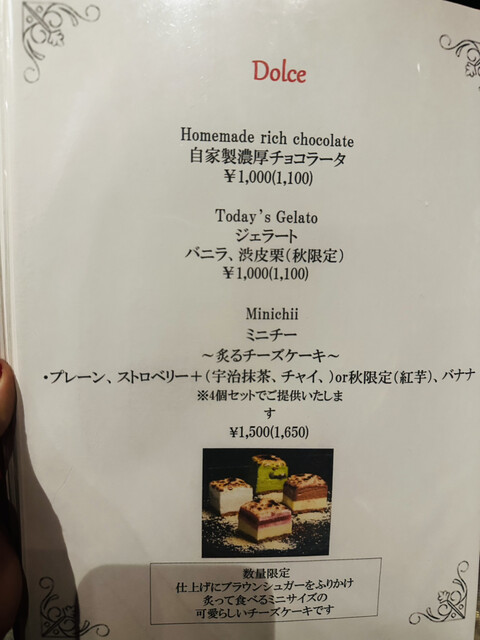 Dolce
Homemade rich chocolate
自家製濃厚チョコラータ
￥1,000(1,100)
Today's Gelato
ジェラート
バニラ、渋皮栗(秋限定)
￥1,000(1,100)
Minichii
ミニチー
～炙るチーズケーキ～
・プレーン、ストロベリー＋(宇治抹茶、チャイ、)or秋限定(紅芋)、バナナ
※4個セットでご提供いたしま
す
¥1,500(1,650)
数量限定
仕上げにブラウンシュガーをふりかけ
炙って食べるミニサイズの
可愛らしいチーズケーキです